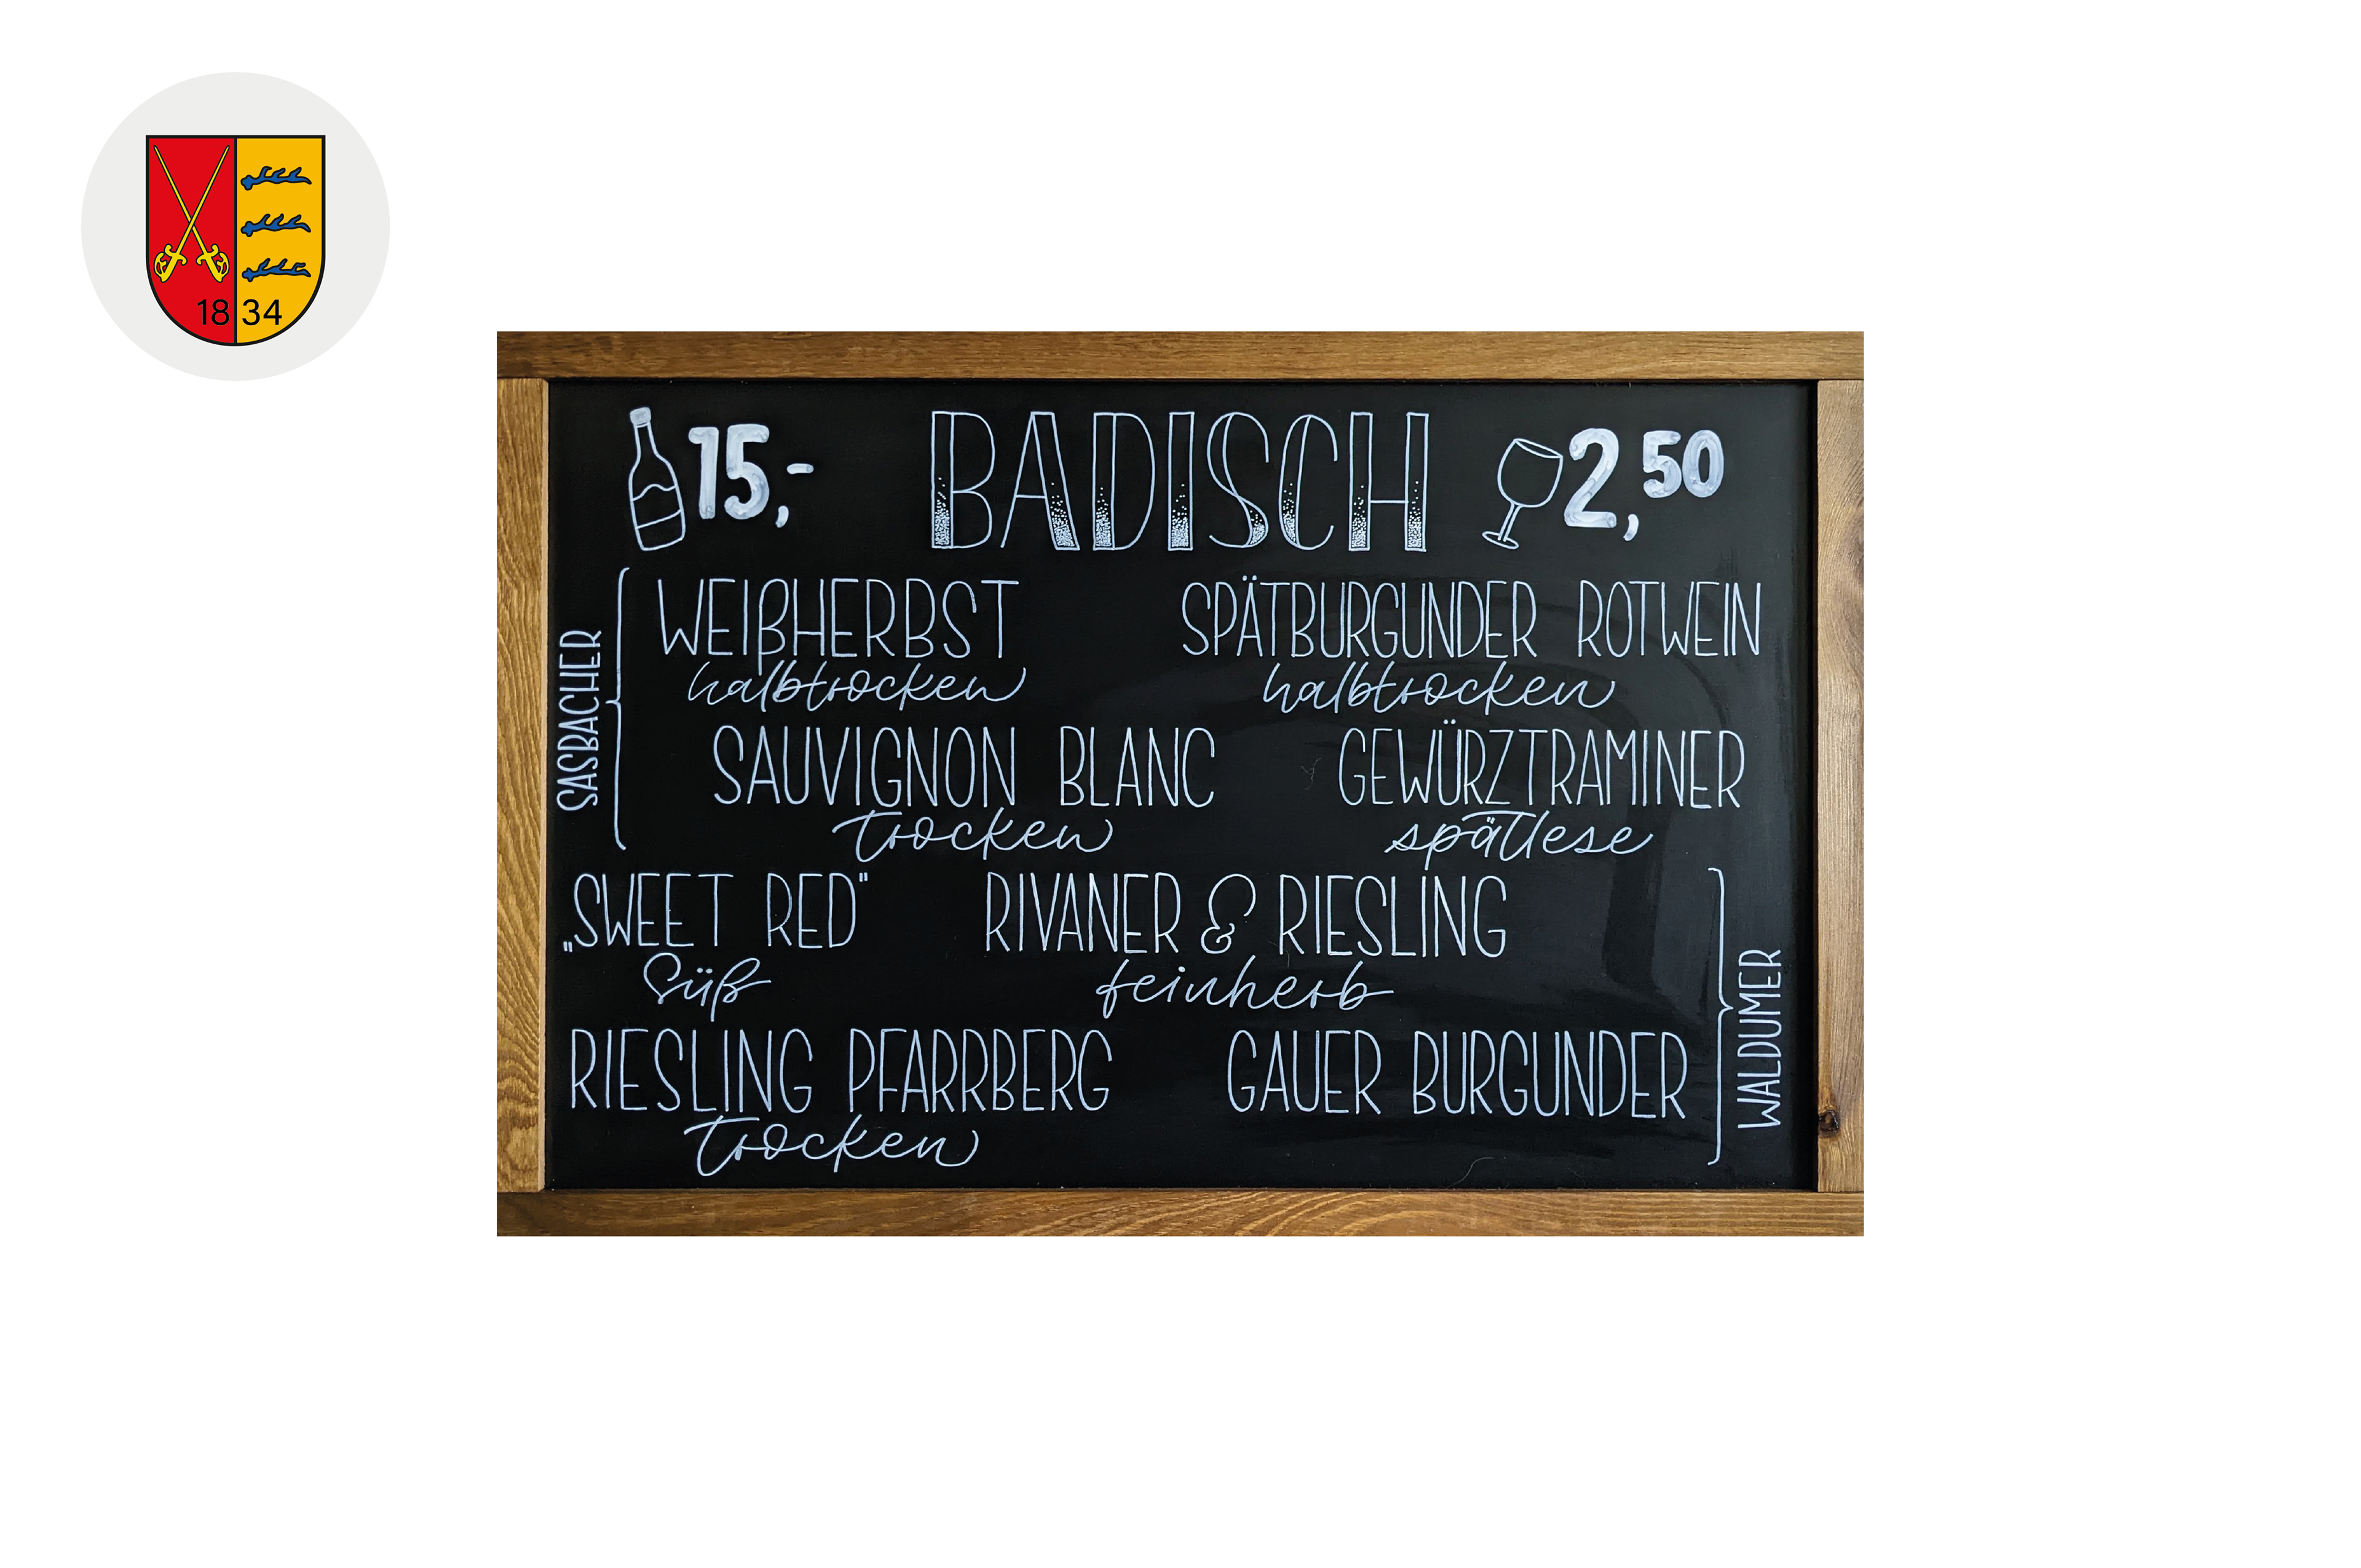 18 34
15,- BADISCH 2,50
SASBACHER
WEIßHERBST SPÄTBURGUNDER ROTWEIN
halbtrocken halbtrocken
SAUVIGNON BLANC GEWÜRZTRAMINER
trocken spätlese
„SWEET RED" RIVANER & RIESLING
süß feinherb
RIESLING PFARRBERG GAUER BURGUNDER
trocken
WALDUMER